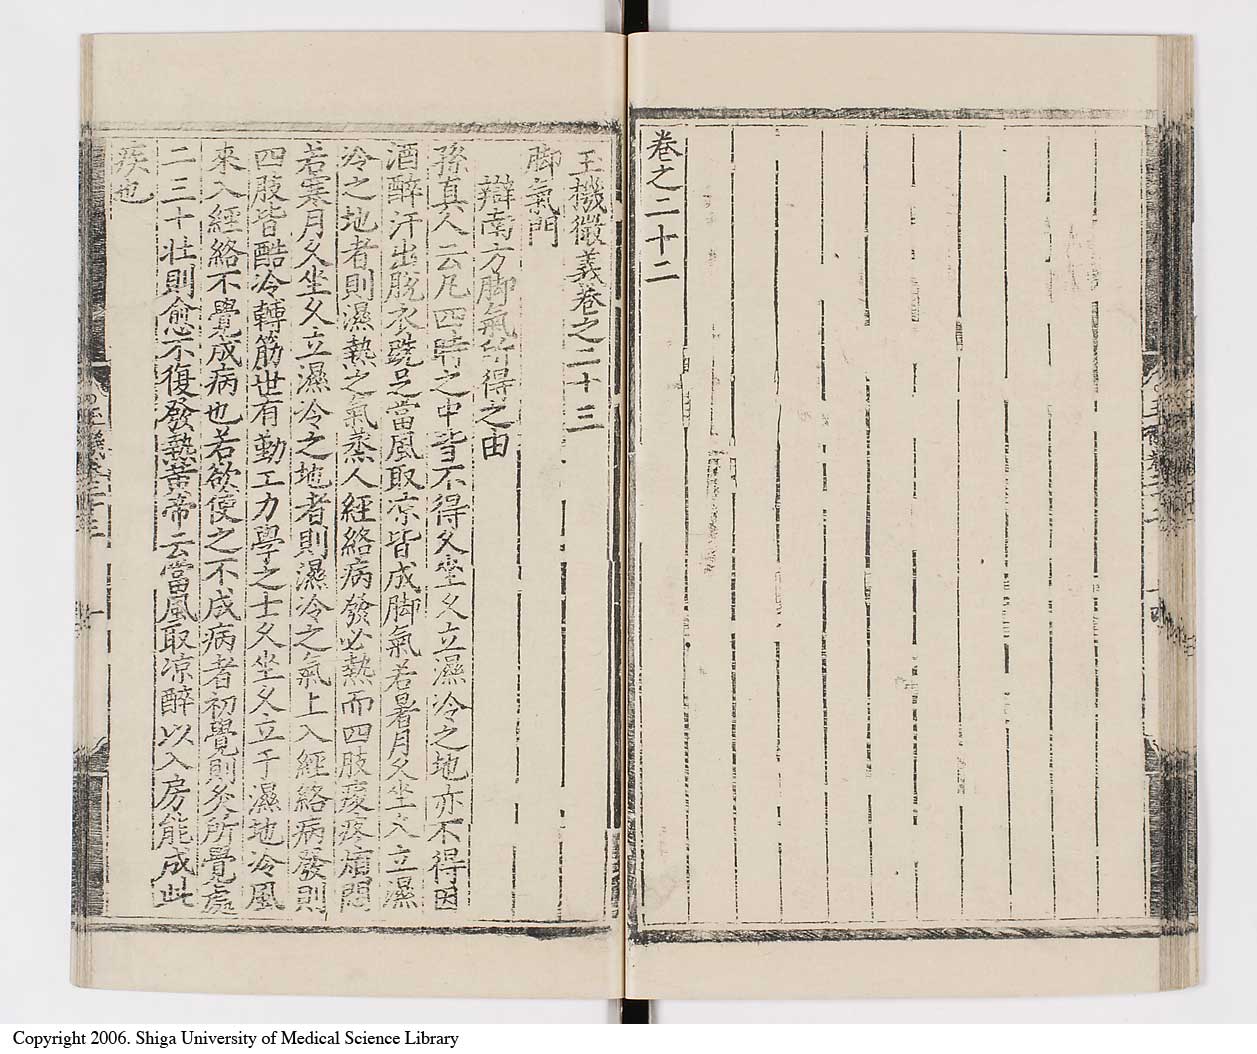 卷之二十二
玉機微義卷之二十三
脚氣門
辯南方脚氣所得之由
孫真人云凡四時之中皆不得久坐久立濕冷之地亦不得因
酒醉汗出脫衣跣足當風取凉皆成脚氣若暑月久坐久立濕
冷之地者則濕熱之氣蒸人經絡病發必熱而四肢痠疼煩悶
若寒月久坐久立濕冷之地者則濕冷之氣上入經絡病發則
四肢皆酷冷轉筋世有勤工力學之士久坐久立于濕地冷風
來入經絡不覺成病也若欲使之不成病者初覺則灸所覺處
二三十壯則愈不復發熱黄帝云當風取凉醉以入房能成此
疾也
Copyright 2006. Shiga University of Medical Science Library